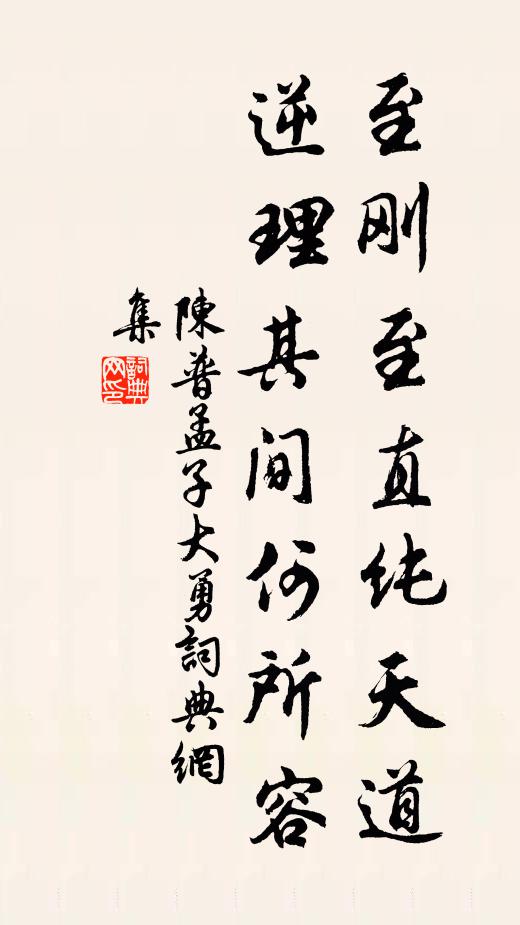 至刚至直纯天道
逆理其间何所容
陳普孟子大勇詞典網
集
詞典
网印